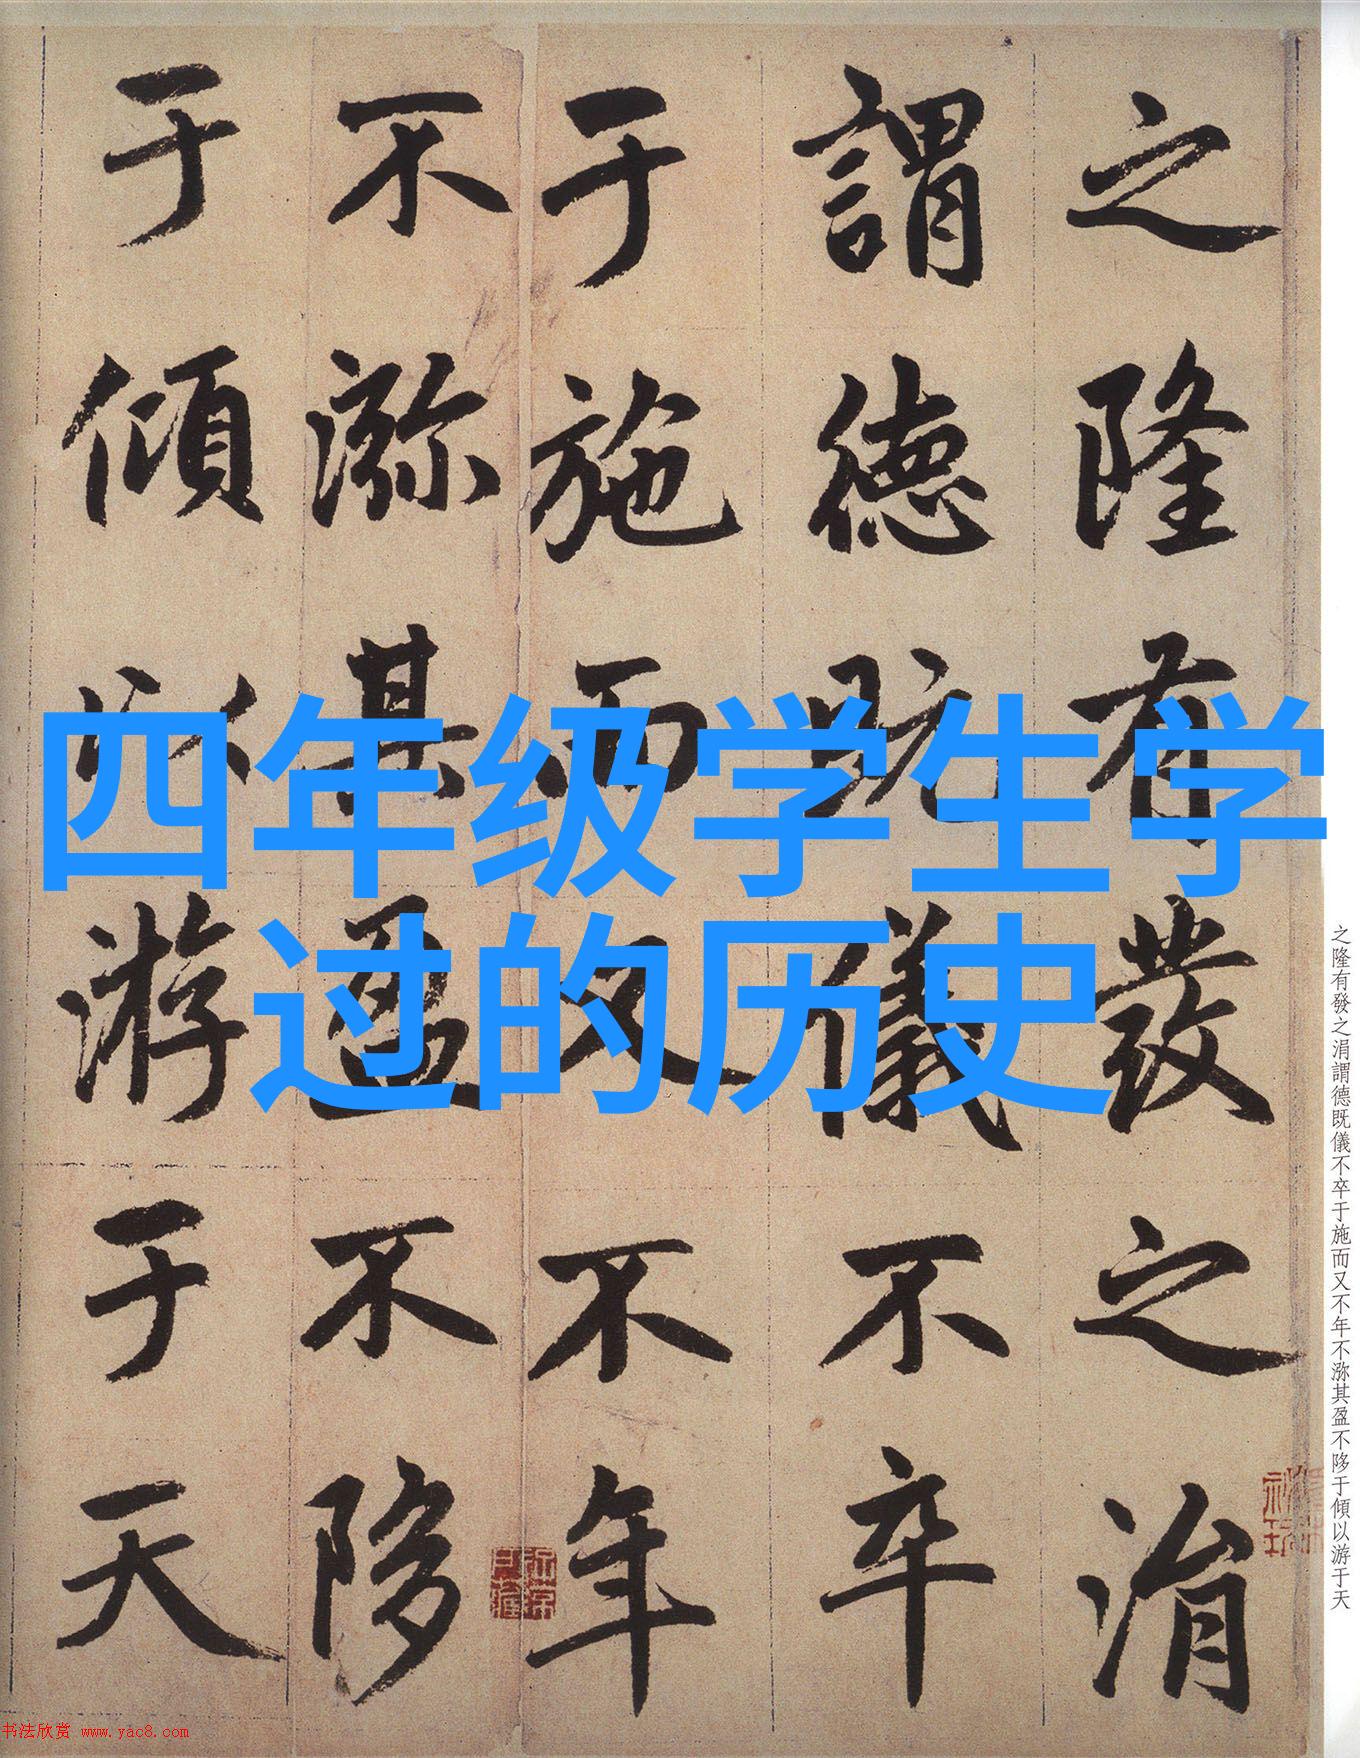 之隆有發之涓
謂德既儀不卒
于施而又不年
不㳽其盈不陊
于傾以游于天
四年级学生学
过的历史
之隆有發之涓謂德既儀不卒于施而又不年不㳽其盈不陊于傾以游于天
书法欣赏 www.yac8.com